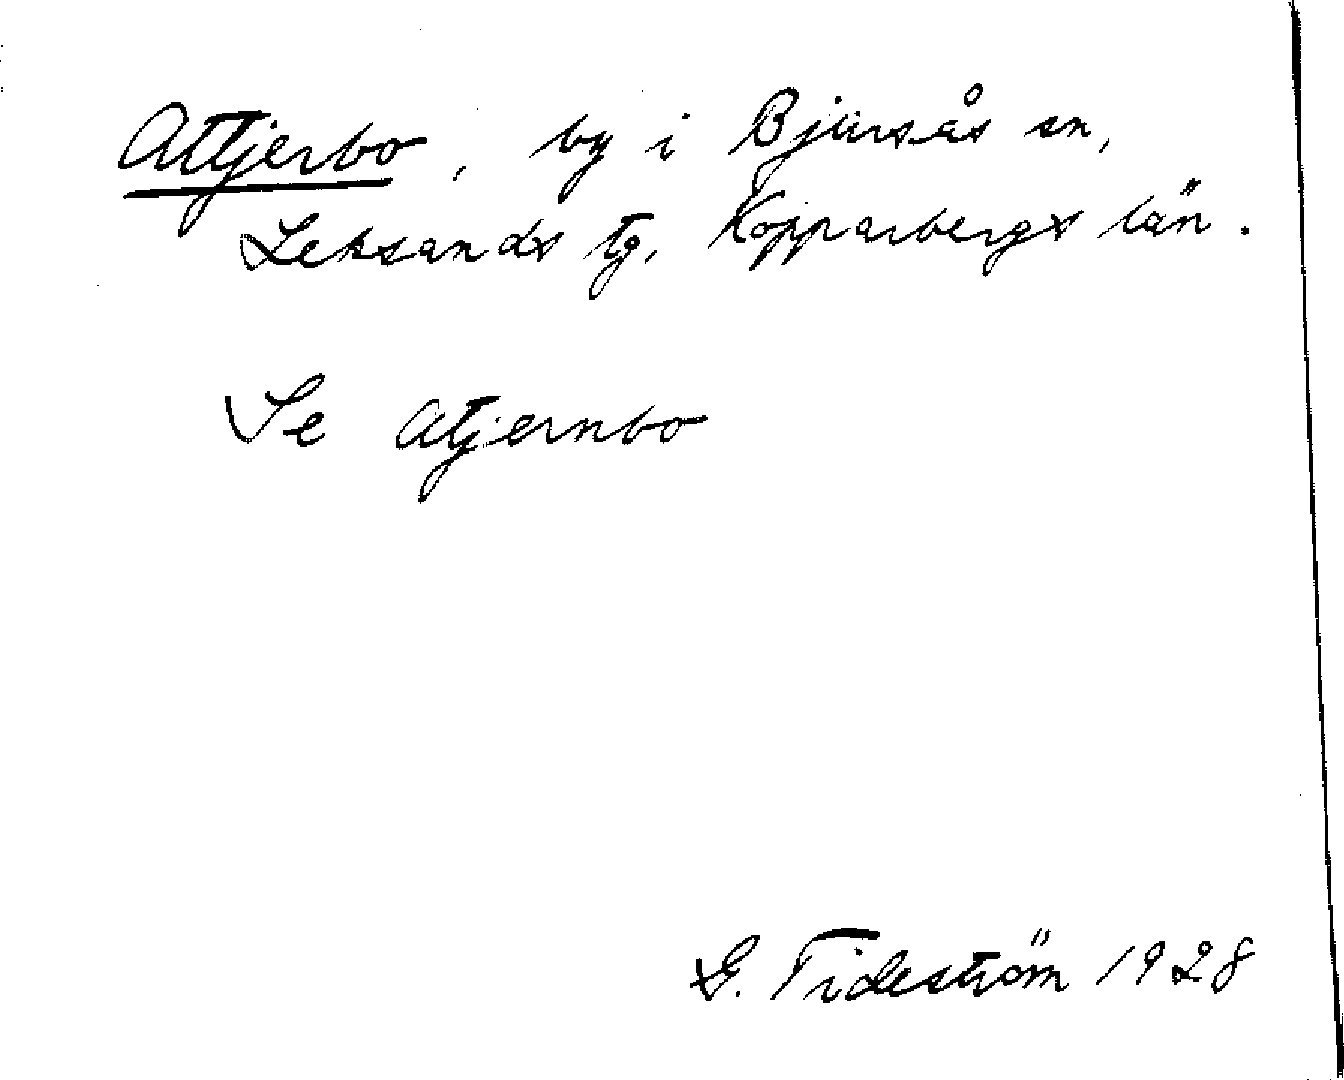 Attjerbo, by i Bjursås sn,
Leksands tg, Kopparbergs län.
Se Atjernbo
G. Tideström 1928